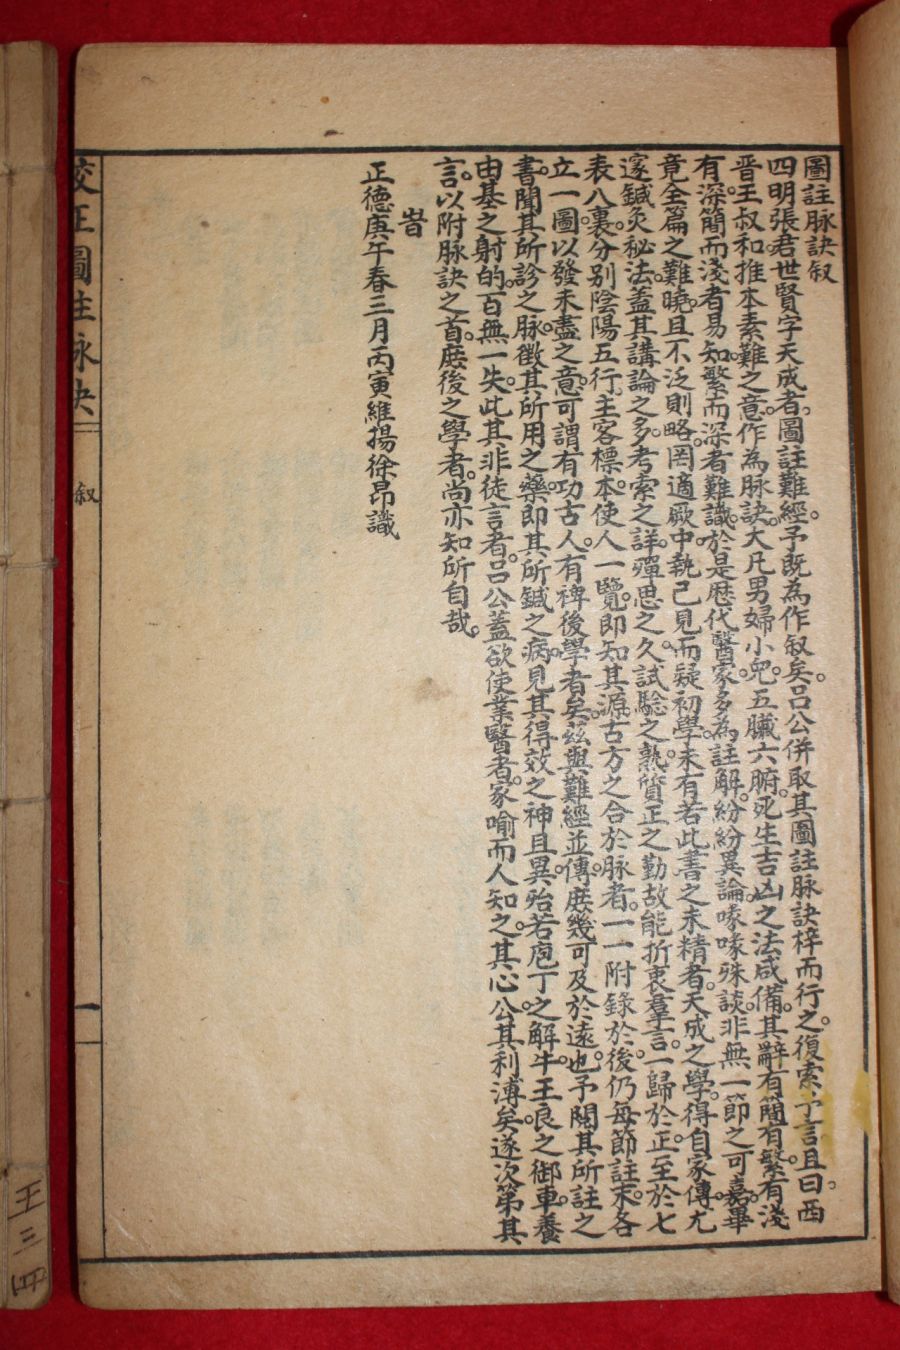 圖註脉訣叙
四明張君世賢字天成者圖註難經予既為作叙矣呂公併取其圖註脉訣梓而行之復索予言且曰西
晋王叔和推本素難之意作為脉訣大凡男婦小兒五臟六腑死生吉凶之法咸備其辭有簡有繁有淺
有深簡而淺者易知繁而深者難識於是歷代醫家多為註解紛紛異論喙喙殊談非無一節之可嘉畢
竟全篇之難曉且不泛則略罔適厥中執己見而疑初學未有若此書之未精者天成之學得自家傳尤
邃鍼灸秘法蓋其講論之多考索之詳殫思之久試驗之熟質正之勤故能折衷羣言一歸於正至於七
表八裏分别陰陽五行主客標本使人一覽即知其源古方之合於脉者一一附錄於後仍每節註末各
立一圖以發未盡之意可謂有功古人有裨後學者矣茲與難經並傳庻幾可及於遠也予閱其所註之
書聞其所診之脉徵其所用之藥即其所鍼之病見其得效之神且異殆若庖丁之解牛王良之御車養
由基之射的百無一失此其非徒言者呂公蓋欲使業醫者家喻而人知之其心公其利溥矣遂次第其
言以附脉訣之首庻後之學者尚亦知所自哉
旹
正德庚午春三月丙寅維揚徐昂識
校正圖註脉訣
叙
一
王
三